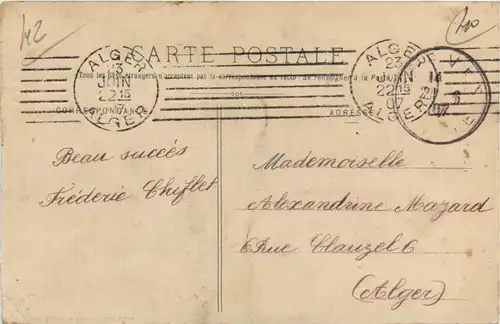 42
CARTE POSTALE
Tous les pays étrangers n'acceptent pas la correspondance au recto. Se renseigner à la
CORRESPONDANCE
ADRESSE
ALGER
23
JUIN
22 15
07
ALGER
ALGER
23
JUIN
22 15
07
ALGER
Beau succès
Fréderic Chiflet
Mademoiselle
Alexandrine Mazard
Rue Clauzel 6
(Alger)